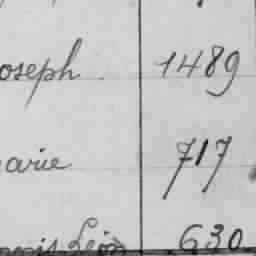 oseph 1489
arie 717
nçois Léon 630